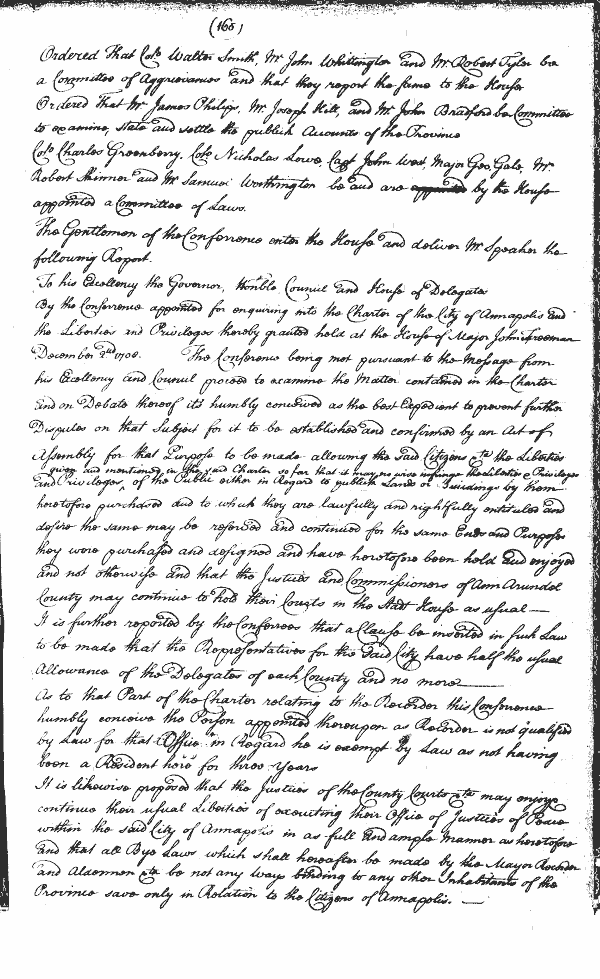 (166)
Ordered That Colo. Walter Smith, Mr John Whittington and Mr Robert Tyler be
a Committee of Aggrievances and that they report the same to the House
Ordered That Mr James Philips, Mr. Joseph Hill, and Mr. John Bradford be Committee
to examine, state and settle the publick Accounts of the Province
Colo. Charles Greenberry, Colo. Nicholas Lowe, Capt John West, Major Geo. Gale, Mr.
Robert Skinner and Mr Samuel Worthington be and are appointed by the House
appointed a Committee of Laws.
The Gentlemen of the Conferrence enter the House and deliver Mr Speaker the
following Report.
To his Excellency the Governor, Honble Council and House of Delegates
By the Conferrence appointed for enquiring into the Charter of the City of Annapolis and
the Liberties and Privileges thereby granted held at the House of Major John Freeman
December 2nd 1708. The Conference being met pursuant to the Message from
his Excellency and Council proceed to examine the Matter contained in the Charter
and on Debate thereof its humbly conceived as the best Expedient to prevent further
Disputes on that Subject for it to be established and confirmed by an Act of
Assembly for that Purpose to be made allowing the said Citizens &ta the Liberties
given and mentioned in the said Charter so far that it may no wise infringe the Liberties & Privileges
and Privileges ^ of the Public either in Regard to publick Lands or Buildings by them
heretofore purchased and to which they are lawfully and rightfully entituled and
desire the same may be reserved and continued for the same Ends and Purposes
they were purchased and designed and have heretofore been held and enjoyed
and not otherwise and that the Justices and Commissioners of Ann Arundel
County may continue to hold their Courts in the Stadt House as usual —
It is further reported by the Conferrees that a Clause be inserted in such Law
to be made that the Representatives for the said City have half the usual
Allowance of the Delegates of each County and no more
As to that Part of the Charter relating to the Recorder this Conference
humbly conceive the Person appointed thereupon as Recorder is not qualified
by Law for that Office in Regard he is exempt by Law as not having
been a Resident here for three Years
It is likewise proposed that the Justices of the County Courts &ta may enjoy
continue their usual Liberties of executing their Office of Justices of Peace
within the said City of Annapolis in as full and ample Manner as heretofore
and that all Bye Laws which shall hereafter be made by the Mayor Recorder
and Aldermen &ta be not any ways binding to any other Inhabitants of the
Province save only in Relation to the Citizens of Annapolis. —